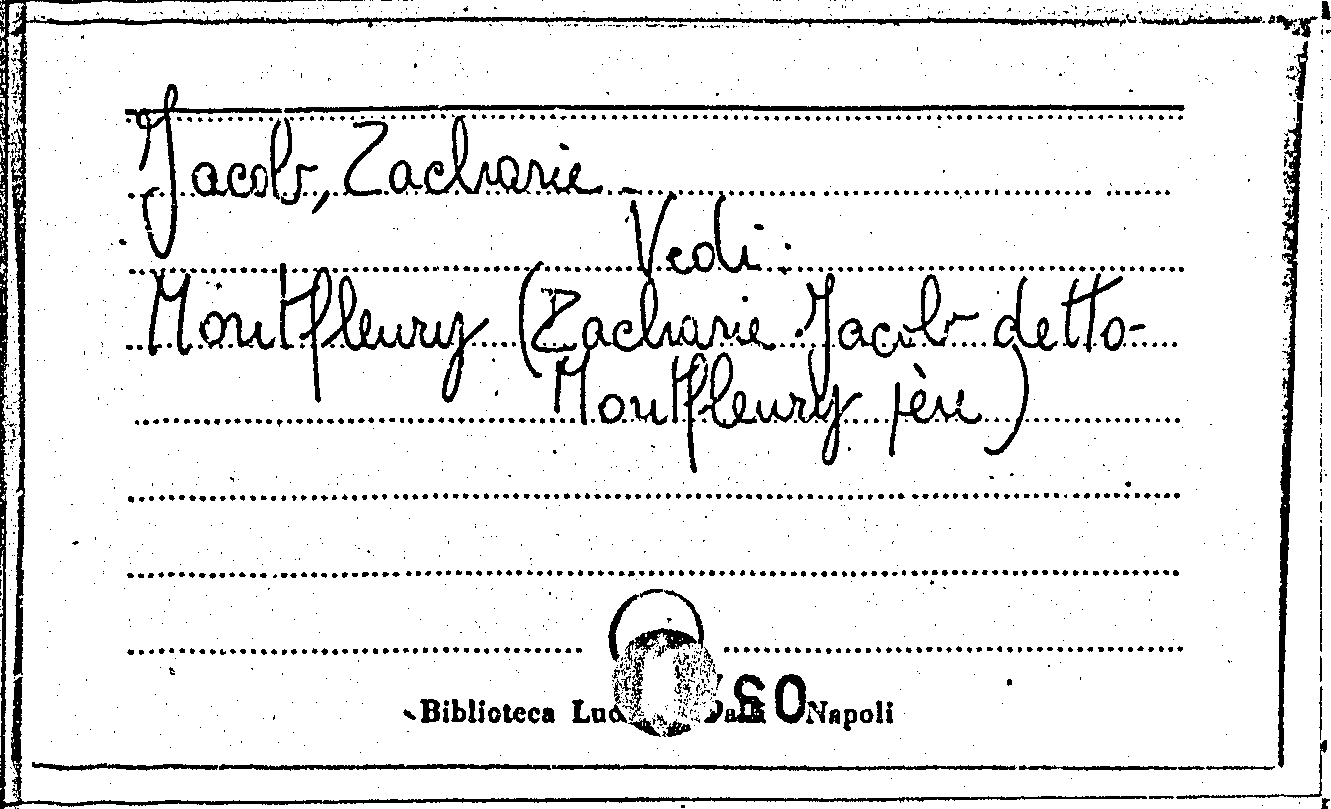 Jacob, Zacharie
Vedi:
Montfleury (Zacharie Jacob detto
Montfleury père)
Biblioteca Napoli